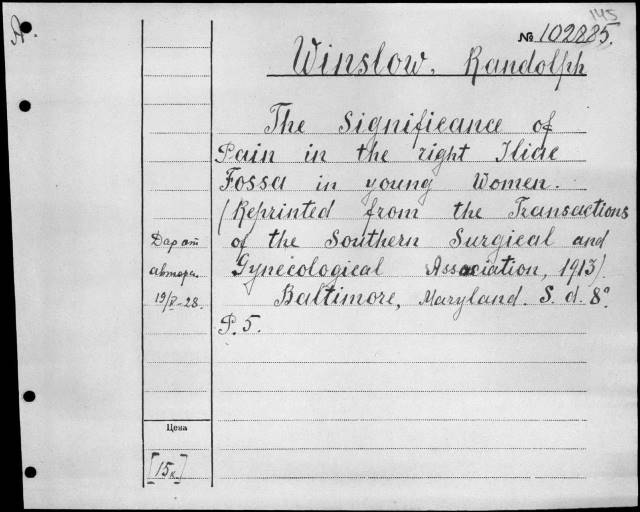 145
A.
№ 102885.
Winslow, Randolph
The Significance of
Pain in the right Iliac
Fossa in young Women.
(Reprinted from the Transactions
of the Southern Surgical and
Gynecological Association, 1913).
Baltimore, Maryland. S. d. 8°
P. 5.
Дар от
автора.
19/V-28.
Цена
[15к.]